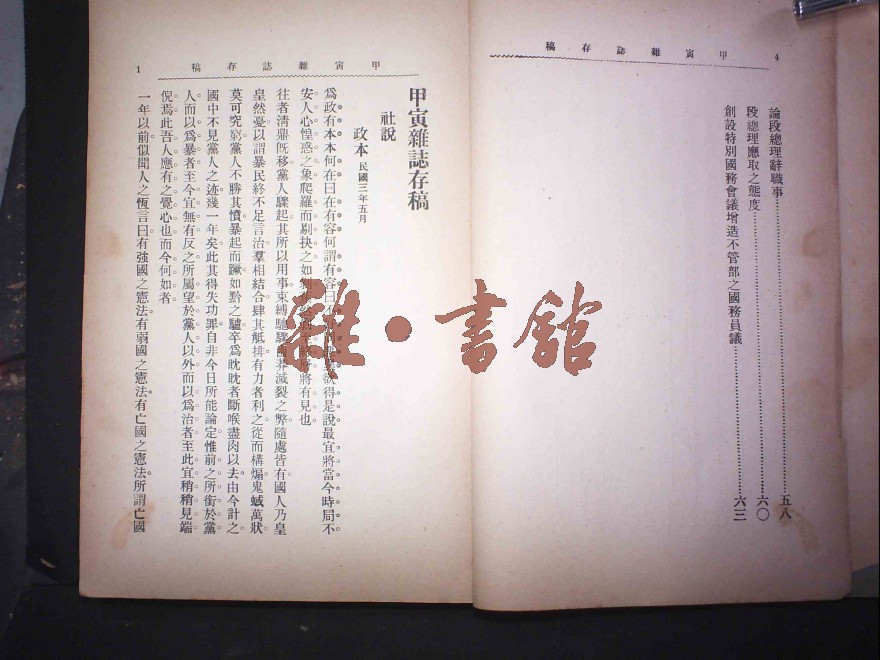 4 甲寅雜誌存稿
論段總理辭職事五八
段總理應取之態度六〇
創設特別國務會議增造不管部之國務員議六三
甲寅雜誌存稿 1
甲寅雜誌存稿
社說
政本 民國三年五月
爲政有本本何在曰在有容何謂有容曰不欲得是說最宜將當今時局不
安人心惶惑之象爬羅而剔抉之如將有見也
往者淸鼎既移黨人驟起其所以用事束縛馳驟滅裂之弊隨處皆有國人乃皇
皇然憂以謂暴民終不足言治羣相結合肆其觝排有力者利之從而構煽鬼蜮萬狀
莫可究窮黨人不勝其憤暴起而蹶如黔之驢卒爲眈眈者斷喉盡肉以去由今計之
國中不見黨人之迹幾一年矣此其得失功罪自非今日所能論定惟前之所銜於黨
人而以爲暴者至今宜無有反之所屬望於黨人以外而以爲治者至此宜稍稍見端
倪焉此吾人應有之覺心也而今何如者
一年以前似聞人之恆言曰有強國之憲法有弱國之憲法有亡國之憲法所謂亡國
雜·書館